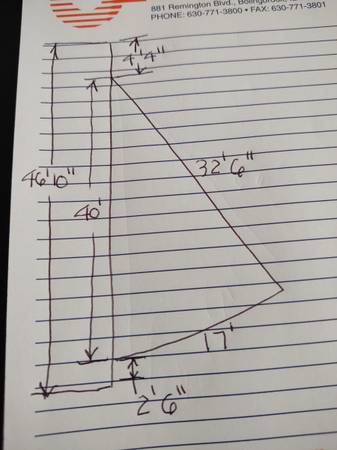 881 Remington Blvd., Bolingbrook,
PHONE: 630-771-3800 • FAX: 630-771-3801
4'4"
32'6"
46'10"
40'
17'
2'6"